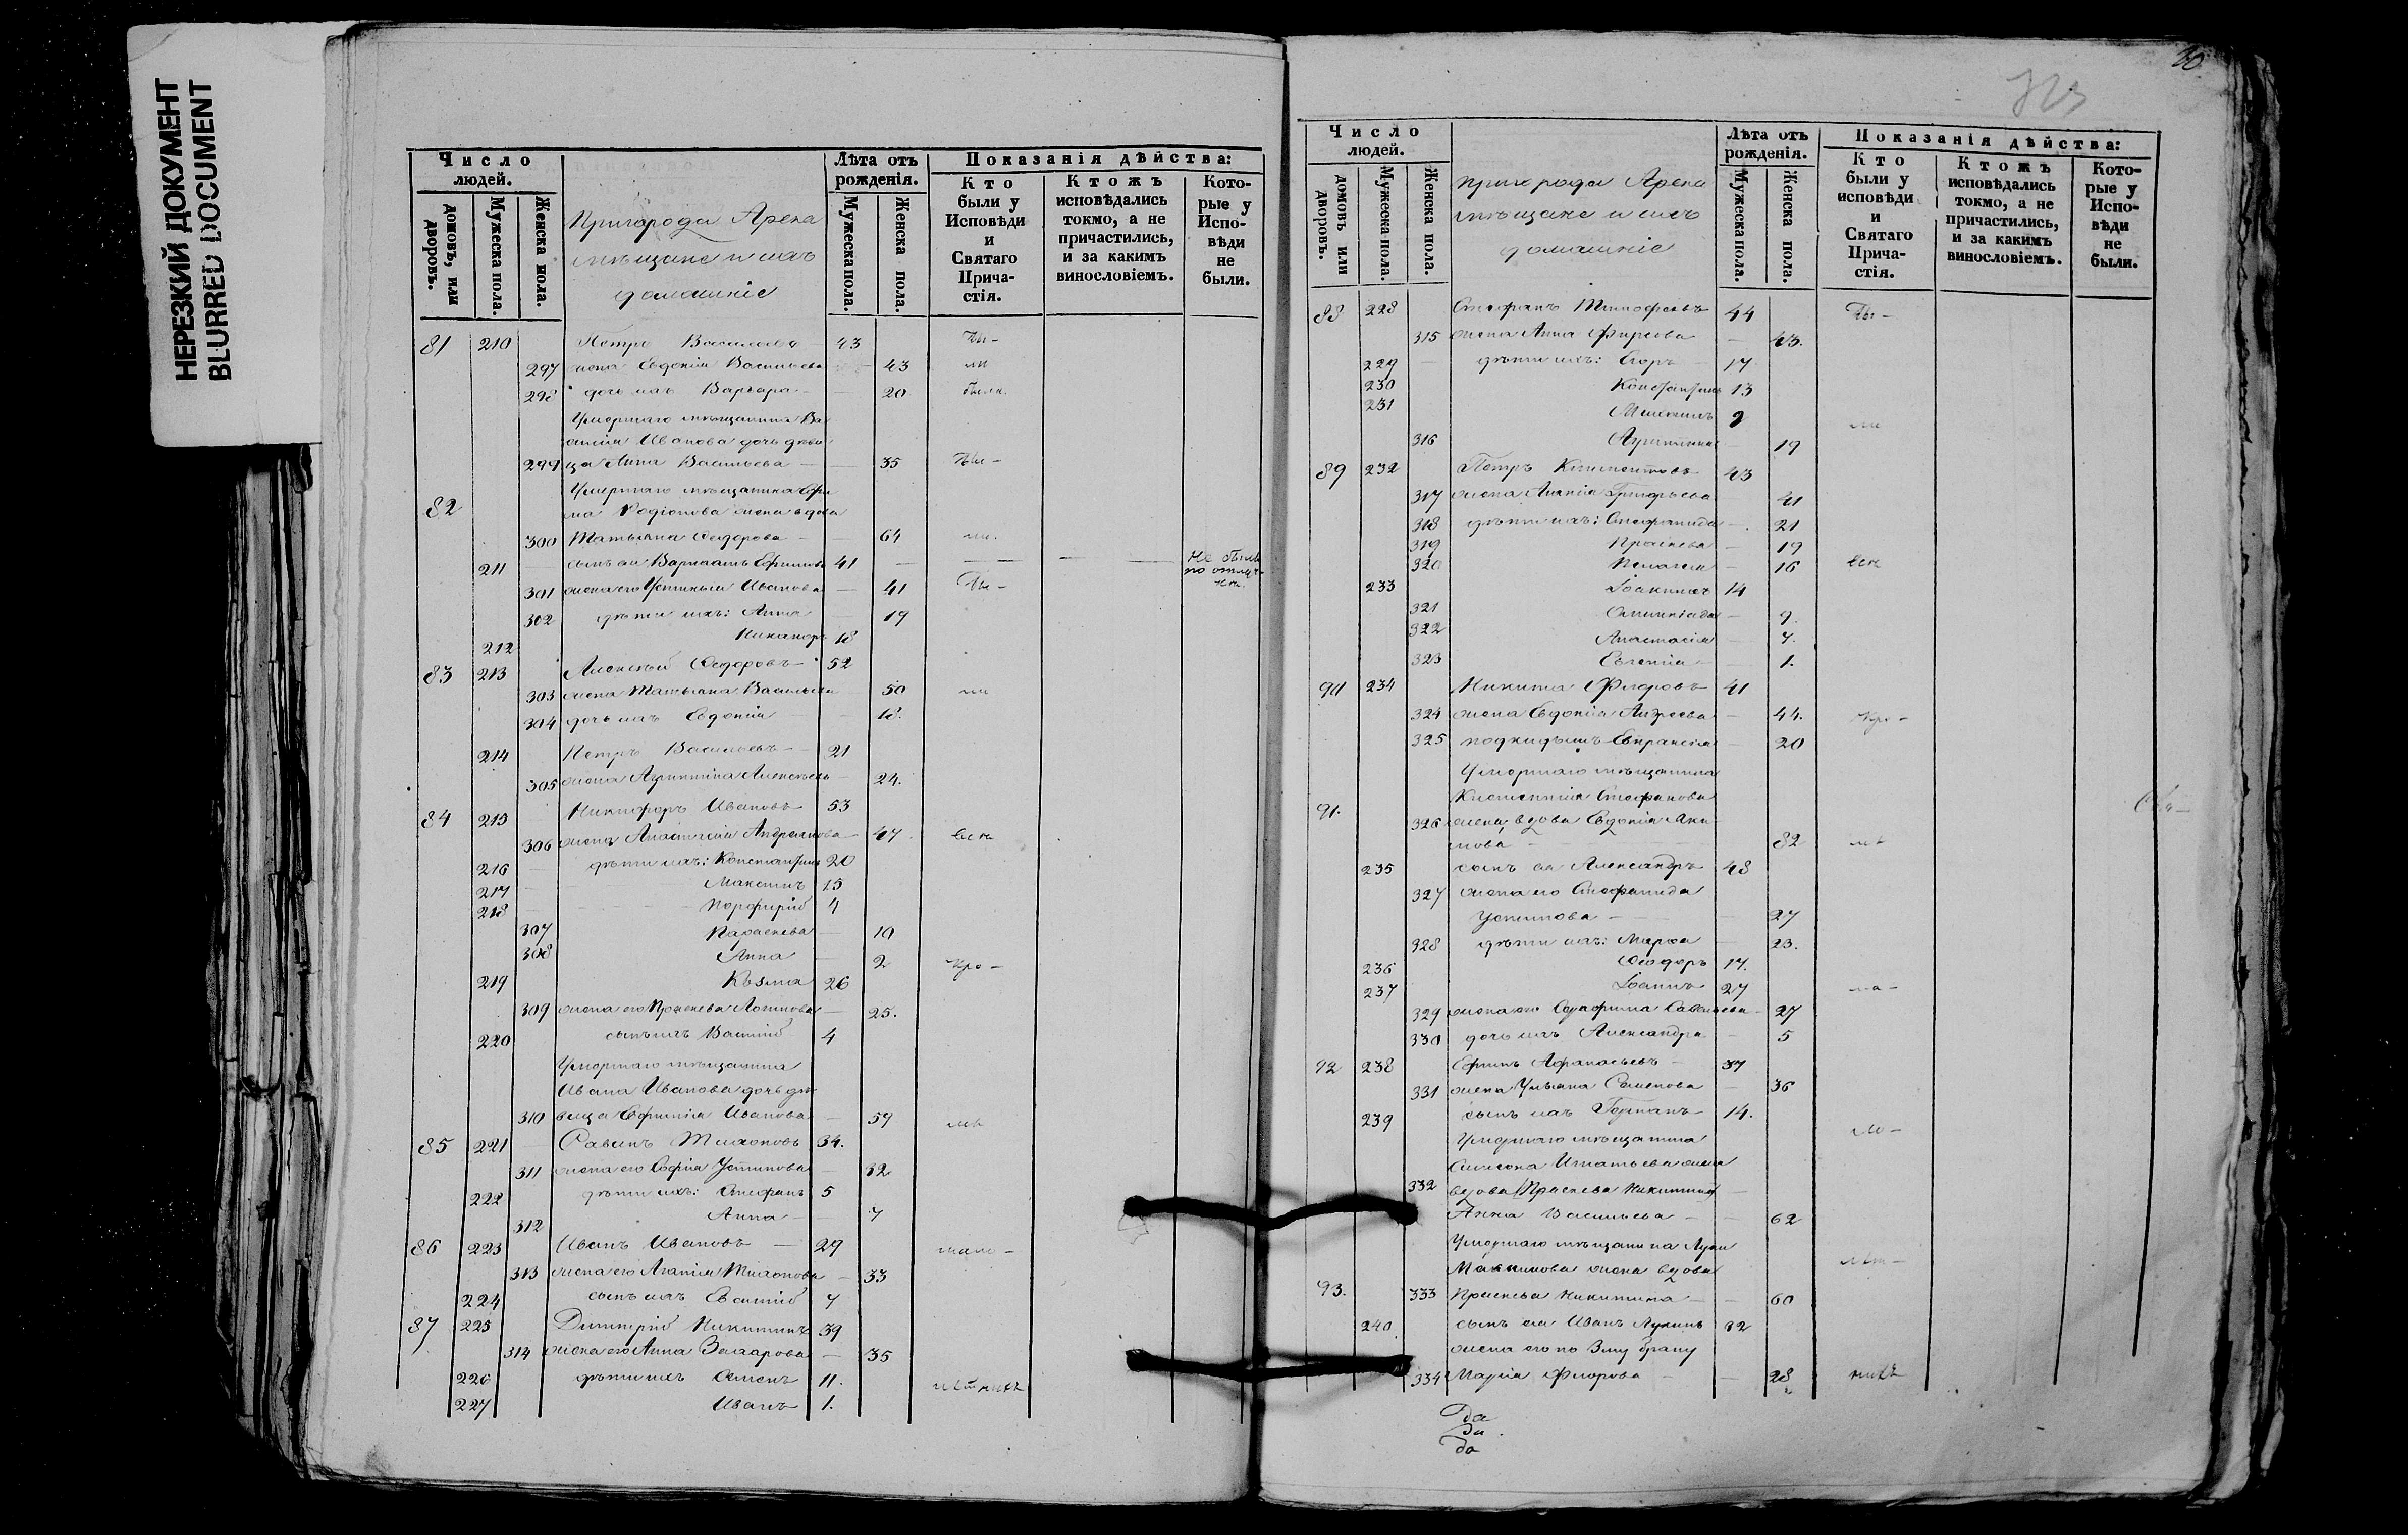 НЕРЕЗКИЙ ДОКУМЕНТ
BLURRED DOCUMENT
Число людей.
домовъ, или дворовъ.
Мужеска пола.
Женска пола.
Пригорода Арска
мѣщане и ихъ
домашніе
Лѣта отъ рожденія.
Мужеска пола.
Женска пола.
Показанія дѣйства:
Кто были у Исповѣди и Святаго Причастія.
Ктожъ исповѣдались токмо, а не причастились, и за какимъ винословіемъ.
Которые у Исповѣди не были.
81 210 Петръ Васильевъ 43 Бы-
297 жена Евдокія Васильева 43 ли
298 дочь ихъ Варвара 20 были
Умершаго мѣщанина Ва
силія Иванова дочь дѣви
299 ца Анна Васильева 35 Бы-
Умершаго мѣщанина Ефи
82 ма Родіонова жена вдова
300 Татьяна Ѳедорова 64 ли.
211 сынъ ея Варлаамъ Ефимовъ 41 Не былъ
по отлуч-
301 жена его Устинья Иванова 41 Бы-
302 дѣти ихъ: Анна 19
212 Никаноръ 18
83 213 Алексѣй Ѳедоровъ 52
303 жена Татьяна Васильева 50 ли
304 дочь ихъ Евдокія 18.
214 Петръ Васильевъ 21
305 жена Агриппина Алексѣева 24.
84 215 Никифоръ Ивановъ 53
306 жена Анастасія 47 всѣ
216 дѣти ихъ: Константинъ 20
217 Максимъ 15
218 Порфирій 4
307 Параскева 10
308 Анна 2 кро-
219 Козма 26
309 жена его Параскева Логинова 25.
220 сынъ ихъ Василій 4
Умершаго мѣщанина
Ивана Иванова дочь дѣ
310 вица Ефимія Иванова 59
85 221 Савинъ Тихоновъ 34.
311 жена его Софія Устинова 32
222 дѣти ихъ: Стефанъ 5
312 Анна 7
86 223 Иванъ Ивановъ 29
313 жена его Агапія Тихонова 33
224 сынъ ихъ Евсигній 7
87 225 Димитрій Никитинъ 39
314 жена его Анна Захарова 35
226 дѣти ихъ Семенъ 11.
227 Иванъ 1.
Число людей.
домовъ или дворовъ.
Мужеска пола.
Женска пола.
пригорода Арска
мѣщане и ихъ
домашніе
Лѣта отъ рожденія.
Мужеска пола.
Женска пола.
Показанія дѣйства:
Кто были у исповѣди и Святаго Причастія.
Ктожъ исповѣдались токмо, а не причастились, и за какимъ винословіемъ.
Которые у Исповѣди не были.
88 228 Стефанъ Тимофеевъ 44 Бы-
315 жена Анна Фирсова 43.
229 дѣти ихъ: Егоръ 17
230 Константинъ 13
231 Михаилъ 9
316 Агриппина 19 ли
89 232 Петръ Климентовъ 43
317 жена Агапія Григорьева 41
318 дѣти ихъ: Стефанида 21
319 Праскева 19
320 Пелагея 16 всѣ
233 Іоакимъ 14
321 Олимпіада 9.
322 Анастасія 7.
323 Евгенія 1.
90 234 Никита Флоровъ 41
324 жена Евдокія Андреева 44. кро-
325 подкидышъ Евпраксія 20
Умершаго мѣщанина
Климентія Стефанова
91. 326 жена, вдова Евдокія Аки
мова 82
235 сынъ ея Александръ 48
327 жена его Стефанида
Устинова 27
328 дѣти ихъ: Марѳа 23.
236 Ѳеодоръ 17.
237 Іоаннъ 27
329 жена его Серафима Савельева 27
330 дочь ихъ Александра 5
92 238 Ефимъ Афанасьевъ 37
331 жена Ульяна Семенова 36
239 сынъ ихъ Германъ 14.
Умершаго мѣщанина
Симеона Игнатьева жена
332 вдова (Праскева Никитина)
Анна Васильева 62
Умершаго мѣщанина Луки
Максимова жена вдова
93. 333 Праскева Никитина 60
240 сынъ ея Иванъ Лукинъ 32
жена его по 3му браку
334 Марія Флорова 28
Да
Да
Да